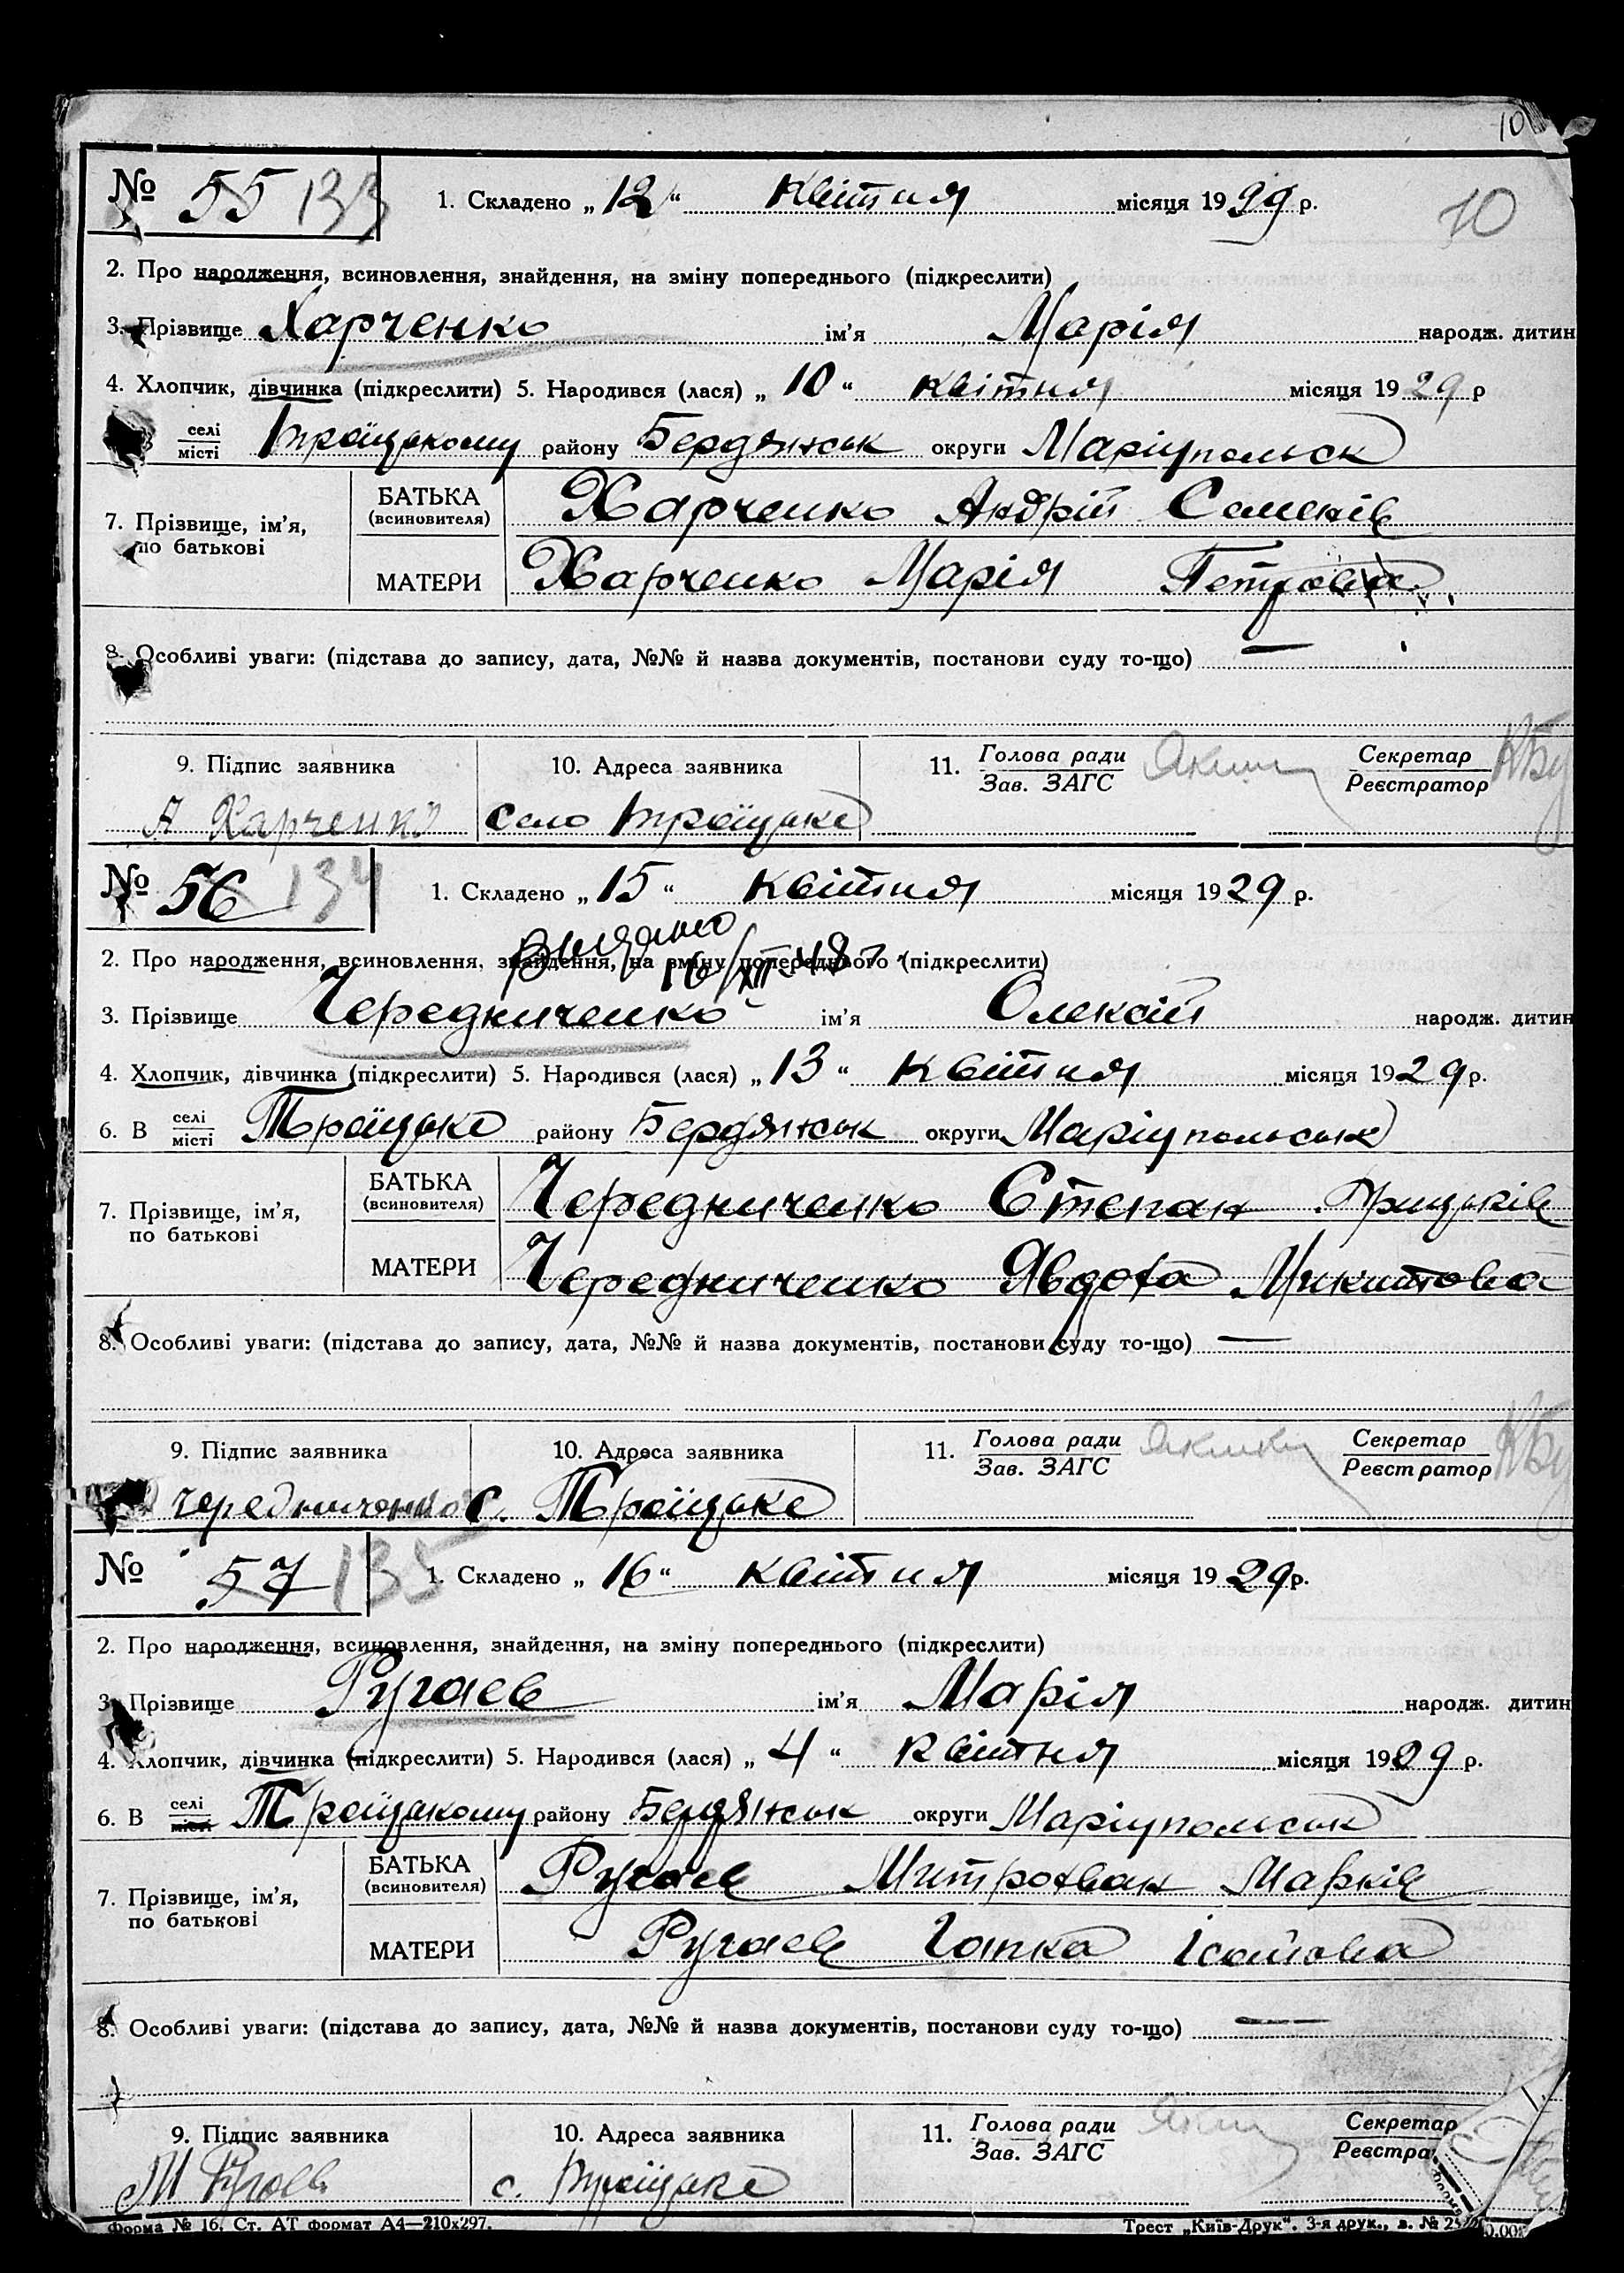 10
№ 55 133 1. Складено „ 12 “ Квітня місяця 1929 р. 10
2. Про народження, всиновлення, знайдення, на зміну попереднього (підкреслити)
3. Прізвище Харченко ім’я Марія народж. дитин
4. Хлопчик, дівчинка (підкреслити) 5. Народився (лася) „ 10 “ квітня місяця 1929 р
селі
місті Троїцькому району Бердянськ округи Маріупольск
7. Прізвище, ім’я, по батькові
БАТЬКА (всиновителя) Харченко Андрій Семенів
МАТЕРИ Харченко Марія Петрова
8. Особливі уваги: (підстава до запису, дата, №№ й назва документів, постанови суду то-що) —
9. Підпис заявника 10. Адреса заявника 11. Голова ради Секретар
Зав. ЗАГС Реєстратор
А Харченко село Троїцьке
№ 56 134 1. Складено „ 15 “ квітня місяця 1929 р.
Выдано
16/XII-48 г.
2. Про народження, всиновлення, знайдення, на зміну попереднього (підкреслити)
3. Прізвище Чередниченко ім’я Олексій народж. дитин
4. Хлопчик, дівчинка (підкреслити) 5. Народився (лася) „ 13 “ Квітня місяця 1929 р.
6. В селі
місті Троїцьке району Бердянськ округи Маріупольськ
7. Прізвище, ім’я, по батькові
БАТЬКА (всиновителя) Чередниченко Степан Грицьків
МАТЕРИ Чередниченко Явдоха Микитова
8. Особливі уваги: (підстава до запису, дата, №№ й назва документів, постанови суду то-що) —
9. Підпис заявника 10. Адреса заявника 11. Голова ради Секретар
Зав. ЗАГС Реєстратор
чередниченко с. Троїцьке
№ 57 135 1. Складено „ 16 “ квітня місяця 1929 р.
2. Про народження, всиновлення, знайдення, на зміну попереднього (підкреслити)
3. Прізвище Ругаев ім’я Марія народж. дитин
4. Хлопчик, дівчинка (підкреслити) 5. Народився (лася) „ 4 “ квітня місяця 1929 р.
6. В селі
місті Троїцькому району Бердянськ округи Маріупольськ
7. Прізвище, ім’я, по батькові
БАТЬКА (всиновителя) Ругаев Митрохван Марків
МАТЕРИ Ругаев Гапка Ісайова
8. Особливі уваги: (підстава до запису, дата, №№ й назва документів, постанови суду то-що) —
9. Підпис заявника 10. Адреса заявника 11. Голова ради Секретар
Зав. ЗАГС Реєстра
М Ругаев с. Троїцьке
Форма № 16. Ст. АТ формат А4—210x297. Трест „Київ-Друк“. 3-я друк., з. №